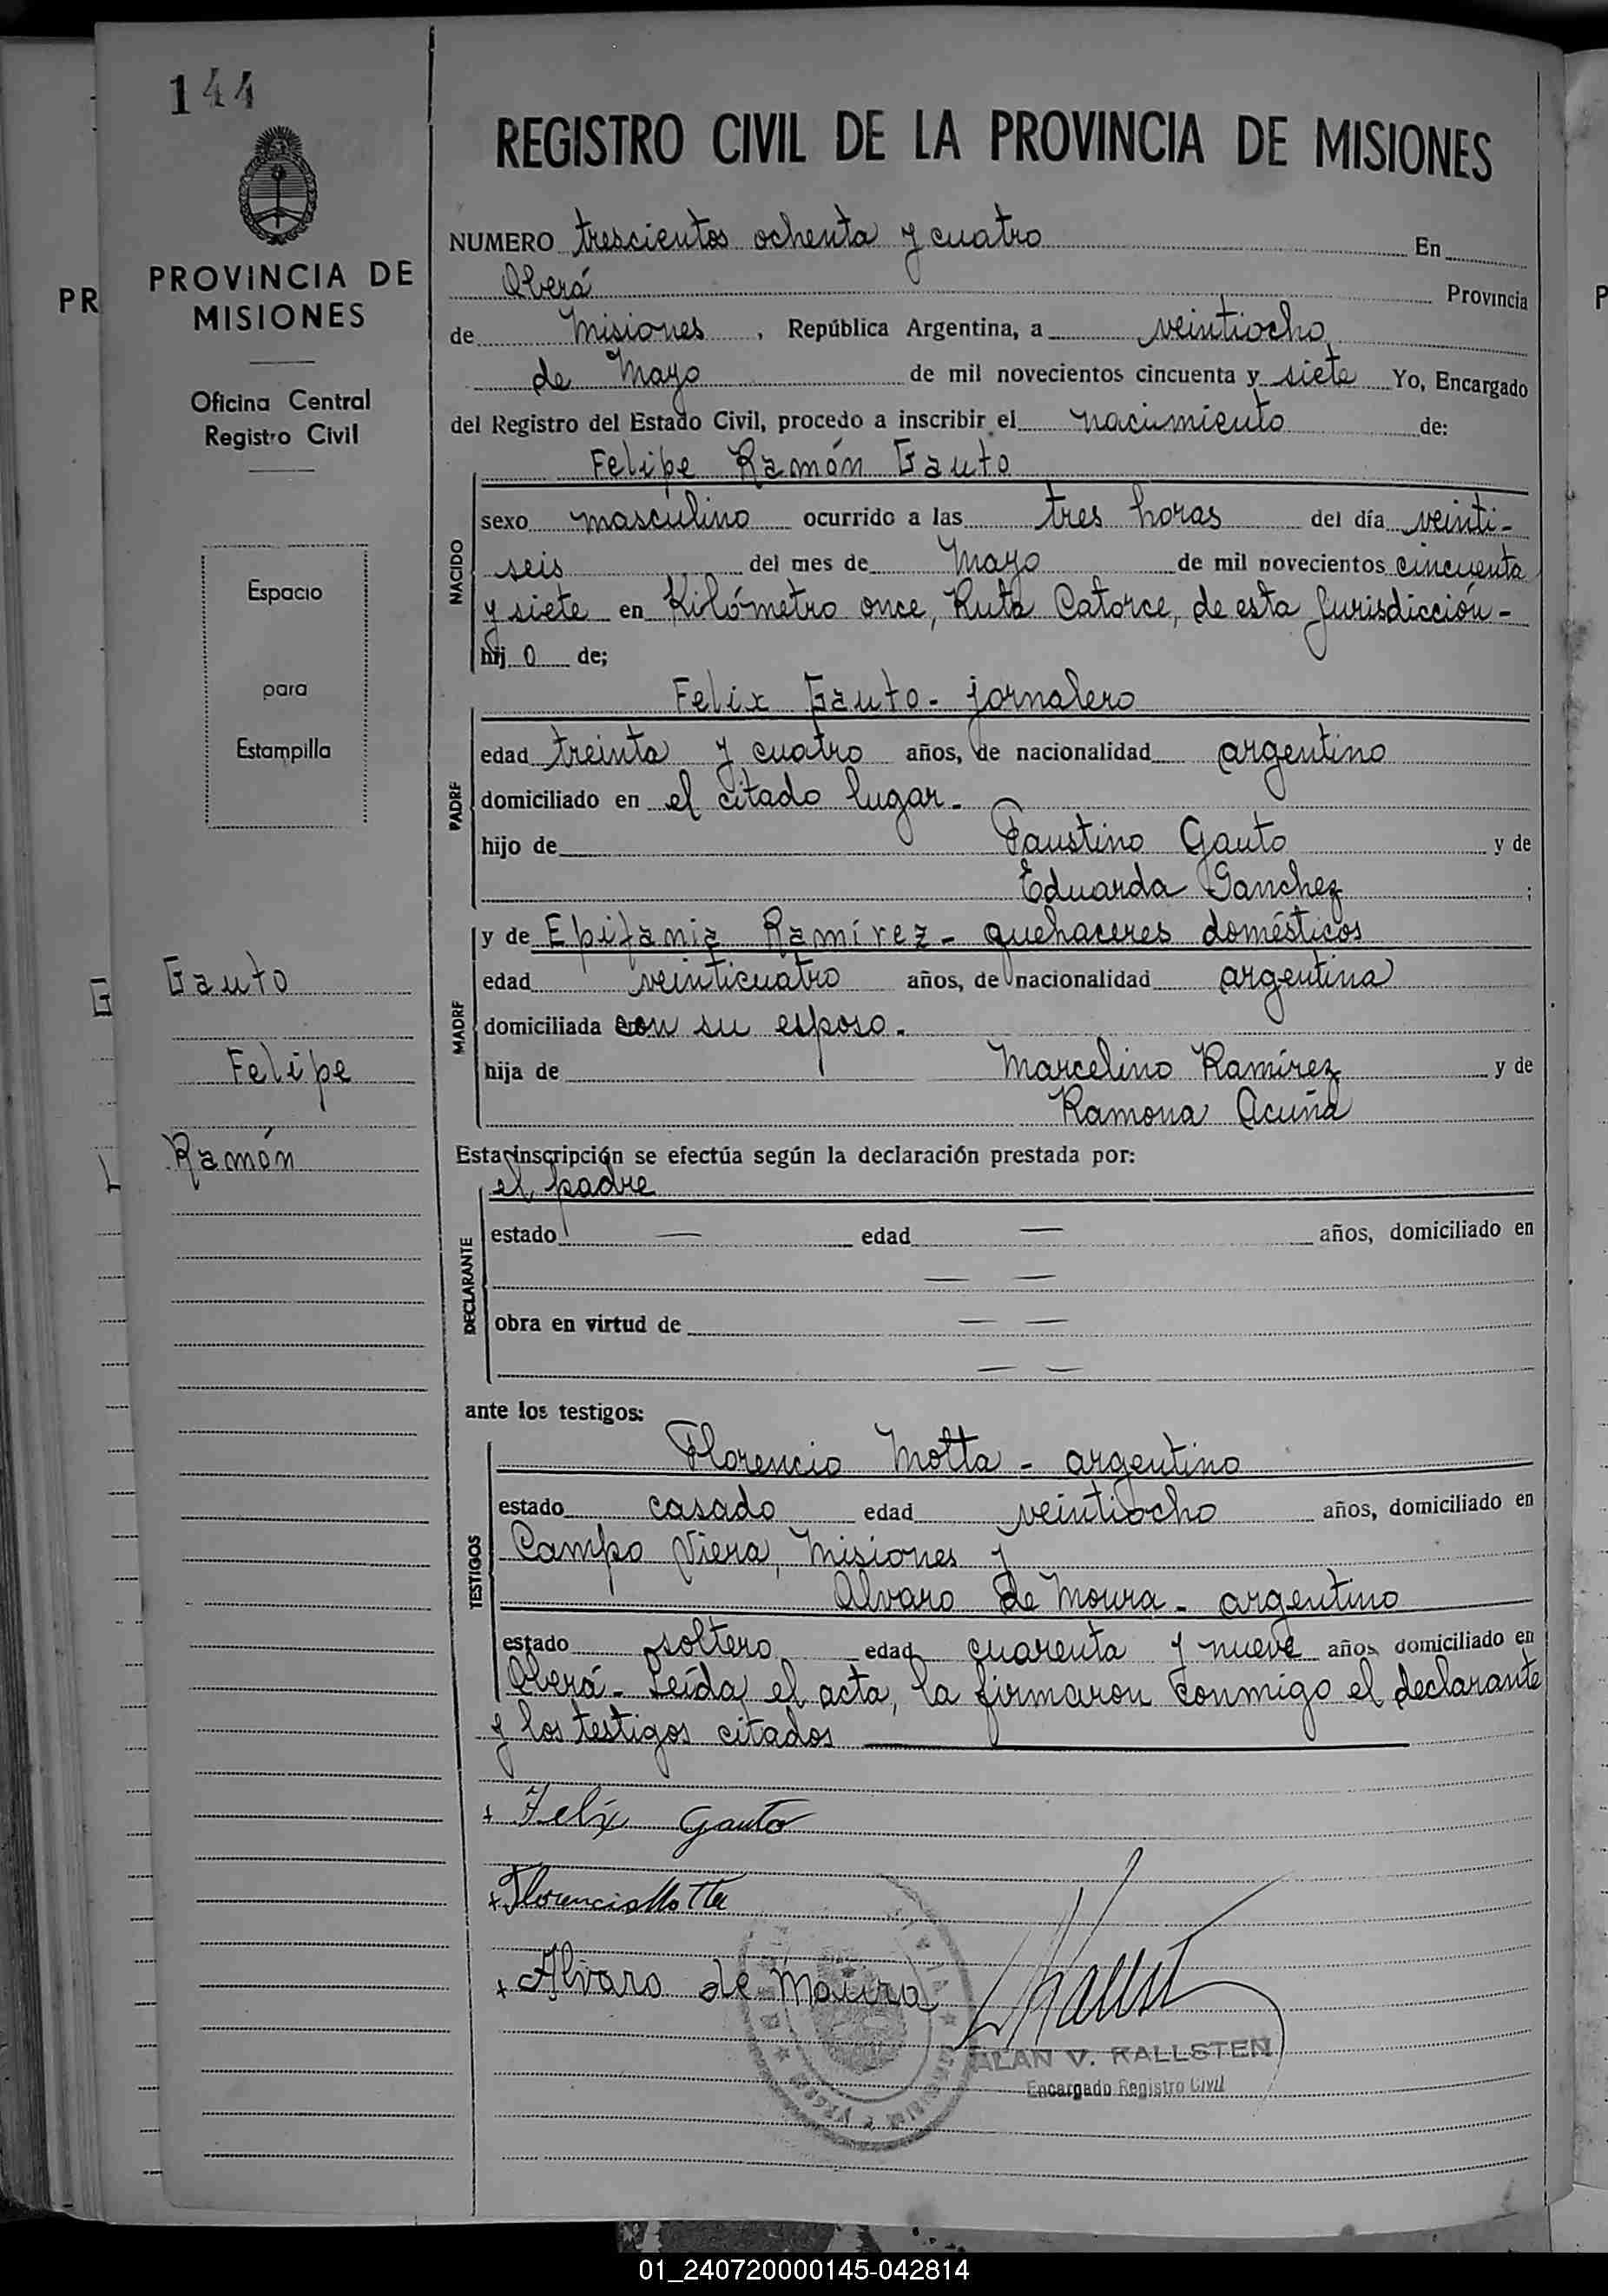 144
PROVINCIA DE
MISIONES
Oficina Central
Registro Civil
Espacio
para
Estampilla
Gauto
Felipe
Ramón
PR
G
REGISTRO CIVIL DE LA PROVINCIA DE MISIONES
NUMERO trescientos ochenta y cuatro En
Oberá Provincia
de Misiones, República Argentina, a veintiocho
de Mayo de mil novecientos cincuenta y siete Yo, Encargado
del Registro del Estado Civil, procedo a inscribir el nacimiento de:
Felipe Ramón Gauto
NACIDO
sexo masculino ocurrido a las tres horas del día veinti-
seis del mes de Mayo de mil novecientos cincuenta
y siete en Kilómetro once, Ruta Catorce, de esta Jurisdicción-
hij o de;
Felix Gauto - jornalero
PADRE
edad treinta y cuatro años, de nacionalidad argentino
domiciliado en el citado lugar-
hijo de Faustino Gauto y de
Eduarda Sanchez ;
y de Epifania Ramírez - quehaceres domésticos
MADRE
edad veinticuatro años, de nacionalidad argentina
domiciliada con su esposo.
hija de Marcelino Ramírez y de
Ramona Acuña
Esta inscripción se efectúa según la declaración prestada por:
el padre
DECLARANTE
estado — edad — años, domiciliado en
— —
obra en virtud de — —
— —
ante los testigos:
Florencio Motta - argentino
TESTIGOS
estado casado edad veintiocho años, domiciliado en
Campo Viera, Misiones y
Alvaro de Moura - argentino
estado soltero edad cuarenta y nueve años domiciliado en
Oberá- Leída el acta, la firmaron conmigo el declarante
y los testigos citados
+ Felix Gauto
+ Florencio Motta
+ Alvaro de Moura
ALAN V. KALLSTEN
Encargado Registro Civil
P
01_240720000145-042814